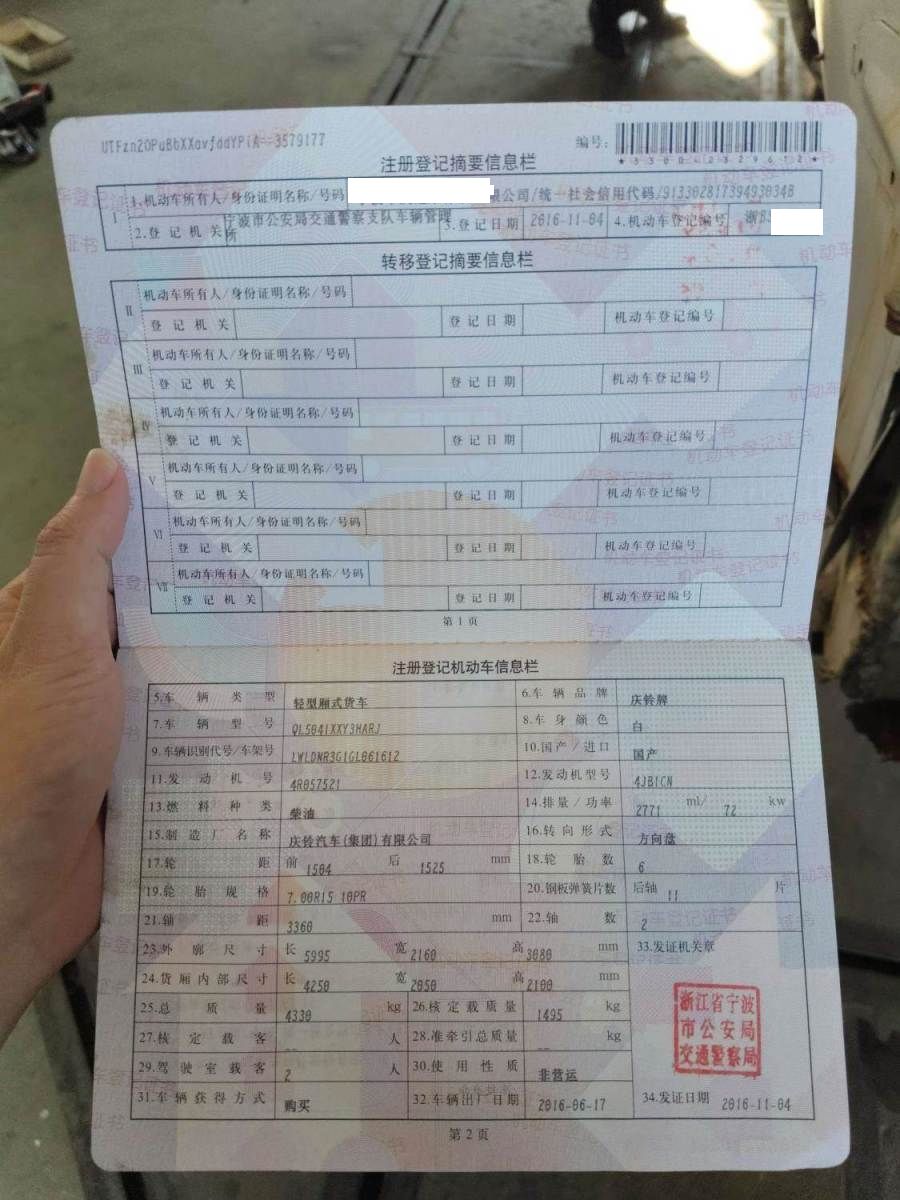 UTFzn2OPuBbXXavfddYPiA==3579177
编号:
*330042329672*
注册登记摘要信息栏
I 1.机动车所有人/身份证明名称/号码 限公司/统一社会信用代码/91330281739493034B
2.登记机关 宁波市公安局交通警察支队车辆管理所 3.登记日期 2016-11-04 4.机动车登记编号 浙B
转移登记摘要信息栏
II 机动车所有人/身份证明名称/号码
登记机关 登记日期 机动车登记编号
III 机动车所有人/身份证明名称/号码
登记机关 登记日期 机动车登记编号
IV 机动车所有人/身份证明名称/号码
登记机关 登记日期 机动车登记编号
V 机动车所有人/身份证明名称/号码
登记机关 登记日期 机动车登记编号
VI 机动车所有人/身份证明名称/号码
登记机关 登记日期 机动车登记编号
VII 机动车所有人/身份证明名称/号码
登记机关 登记日期 机动车登记编号
第1页
注册登记机动车信息栏
5.车辆类型 轻型厢式货车 6.车辆品牌 庆铃牌
7.车辆型号 QL5041XXY3HARJ 8.车身颜色 白
9.车辆识别代号/车架号 LWLDNR3G1GL061612 10.国产/进口 国产
11.发动机号 4R057521 12.发动机型号 4JB1CN
13.燃料种类 柴油 14.排量/功率 2771 ml/ 72 kw
15.制造厂名称 庆铃汽车(集团)有限公司 16.转向形式 方向盘
17.轮距 前 1504 后 1525 mm 18.轮胎数 6
19.轮胎规格 7.00R15 10PR 20.钢板弹簧片数 后轴 11 片
21.轴距 3360 mm 22.轴数 2
23.外廓尺寸 长 5995 宽 2160 高 3080 mm 33.发证机关章
24.货厢内部尺寸 长 4250 宽 2050 高 2100 mm
浙江省宁波
市公安局
交通警察局
25.总质量 4330 kg 26.核定载质量 1495 kg
27.核定载客 -- 人 28.准牵引总质量 -- kg
29.驾驶室载客 2 人 30.使用性质 非营运
31.车辆获得方式 购买 32.车辆出厂日期 2016-06-17 34.发证日期 2016-11-04
第2页